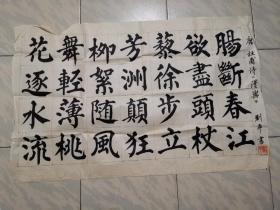 腸斷春江
欲盡頭杖
藜徐步立
芳洲顛狂
柳絮随風
舞輕薄桃
花逐水流
杜甫詩漫興
劉書